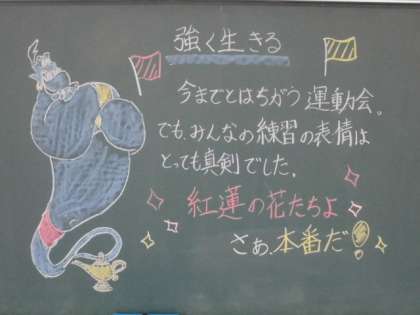 強く生きる
今までとはちがう運動会。
でも、みんなの練習の表情は
とっても真剣でした。
紅蓮の花たちよ
さぁ、本番だ!